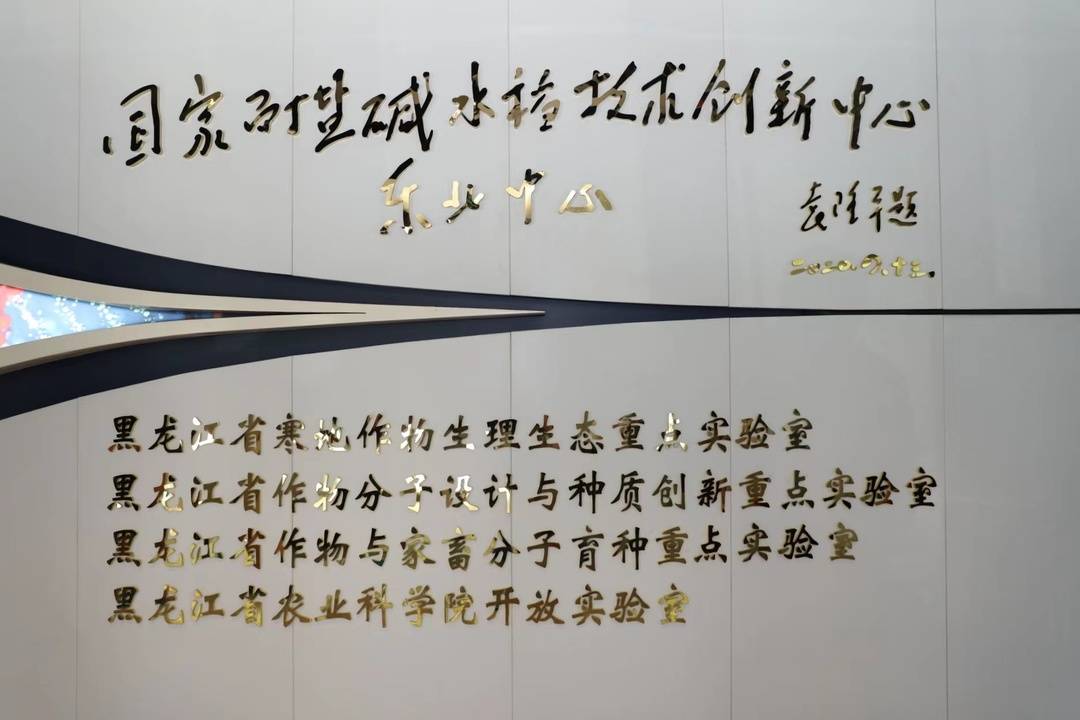 国家耐盐碱水稻技术创新中心
东北中心
袁隆平题
二〇二〇.九.十三.
黑龙江省寒地作物生理生态重点实验室
黑龙江省作物分子设计与种质创新重点实验室
黑龙江省作物与家畜分子育种重点实验室
黑龙江省农业科学院开放实验室